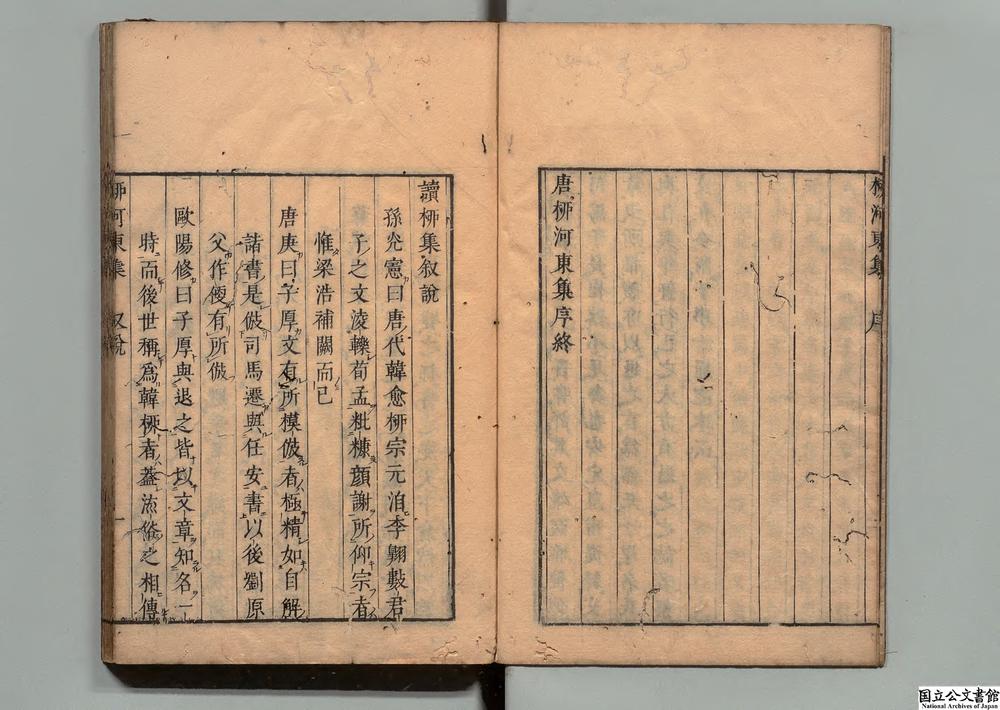 柳河東集 序
唐柳河東集序終
讀柳集叙說
孫光憲曰唐代韓愈柳宗元洎李翺數君
子之文淩轢荀孟粃糠顏謝所仰宗者
惟梁浩補闕而已
唐庚曰子厚文有所模倣者極精如自解
諸書是倣司馬遷與任安書以後劉原
父作便有所倣
歐陽修曰子厚與退之皆以文章知名一
時而後世稱為韓柳者蓋流俗之相傳
柳河東集 叙說 一
国立公文書館
National Archives of Japan